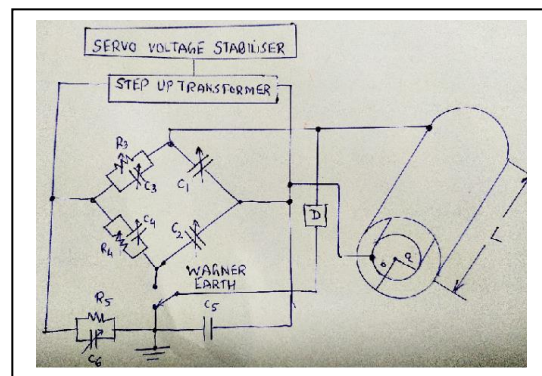 SERVO VOLTAGE STABILISER
STEP UP TRANSFORMER
R3
C3
C1
C4
R4
C2
D
L
WAGNER
EARTH
R5
C5
C6